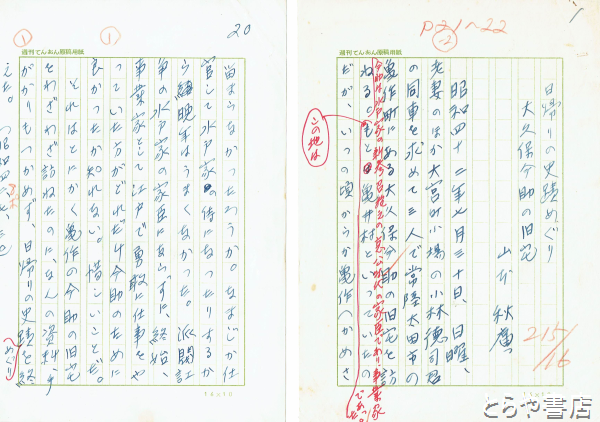 P21〜22
週刊てんおん原稿用紙
日帰りの史蹟めぐり
大久保今助の旧宅
山本 秋廣
215/16
昭和四十二年七月三十日、日曜、
老妻のほか大宮町小場の小林徳司君
の同車を求めて三人で常陸太田市の
亀作町にある大久保今助の旧宅を訪
ねる。もと亀井村といっていたの
だが、いつの頃からか亀作へかめさ
この地は
とらや書店
20
週刊てんおん原稿用紙
留まらなかったろうか。なまじか仕
官して水戸家の侍になったりするか
ら経晩年はうまくなかった。派閥江
争の水戸家の家臣にならずに、終始、
事業家として江戸で勇敢に仕事をや
っていた方がどれだけ今助のために
良かったか知れない。惜しいことだ。
それはとにかく亀作の今助の旧宅
をわざわざ訪ねたのに、なんの資料、手
がかりもつかめず、日帰りの史蹟を終
えた。
めぐり